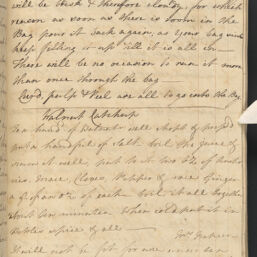 will be thick & therefore cloudy, for which
reason as soon as there is room in the
Bag pour it back again, as your bag
keep filling it up till it is all in
There will be no occasion to run it more
than once through the bag
Curd, pulp & Peel are all to go into the Bag
Walnut Catchup
To a hund of Walnuts well chopt & press'd
put a handful of Salt boil the juice &
skim it well, put to it two oz of
Mace, Cloves, Pepper & race Ginger
a of an oz of each boil it all together
about ten minutes When cold put it in
Bottles spice & all
It will not be fit for use